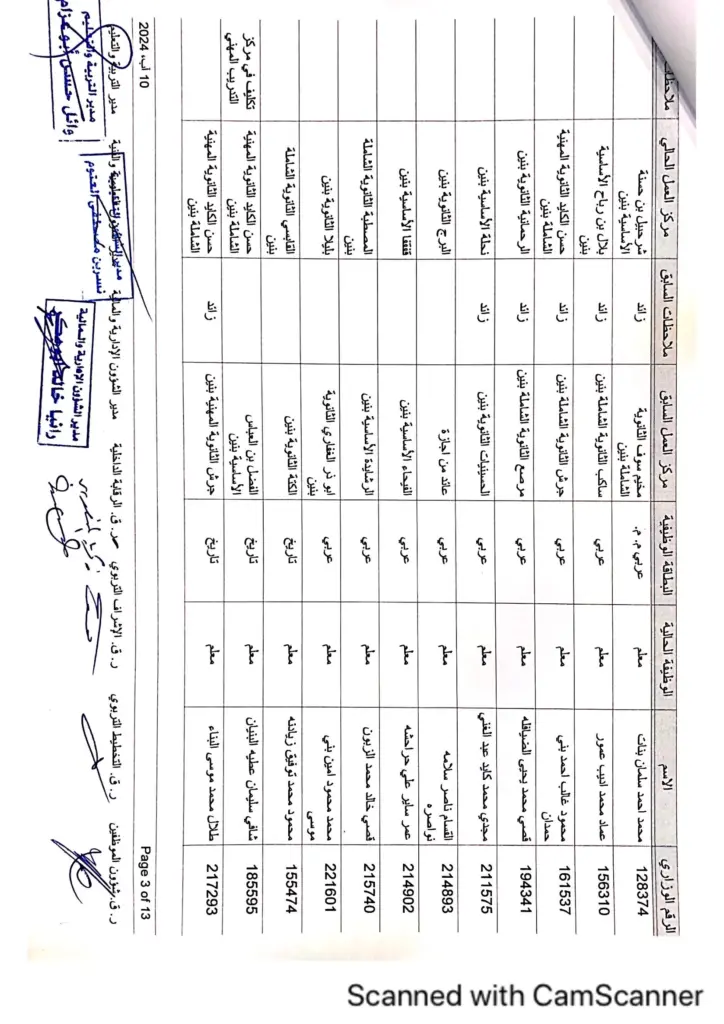 الرقم الوزاري الاسم الوظيفة الحالية البطاقة الوظيفية مركز العمل السابق ملاحظات السابق مركز العمل الحالي
128374 محمد احمد سلمان بنات معلم عربي م.م. مخيم سوف الثانوية الشاملة بنين زائد شرحبيل بن حسنة الأساسية بنين
156310 عماد محمد اديب عمور معلم عربي ساكب الثانوية الشاملة بنين زائد بلال بن رباح الأساسية بنين
161537 محمود غالب احمد بني حمدان معلم عربي جرش الثانوية الشاملة بنين زائد حسن الكايد الثانوية المهنية الشاملة بنين
194341 قصي محمد يحيى الضياقله معلم عربي مرصع الثانوية الشاملة بنين زائد الرحمانية الثانوية بنين
211575 مجدي محمد كايد عبد الغني معلم عربي الحسينيات الثانوية بنين زائد نحلة الأساسية بنين
214893 القسام ناصر سلامه نواصره معلم عربي عائد من اجازة البرج الثانوية بنين
214902 عمر ساير علي حراحشه معلم عربي الفيحاء الأساسية بنين قفقفا الأساسية بنين
215740 قصي خالد محمد الزبون معلم عربي الرشايدة الأساسية بنين المصطبة الثانوية الشاملة بنين
221601 محمد محمود امين بني موسى معلم عربي ابو ذر الغفاري الثانوية بنين بليلا الثانوية بنين
155474 محمود محمد توفيق زيادنه معلم تاريخ الكتة الثانوية بنين القابسي الثانوية الشاملة بنين
185595 شافي سليمان عطيه البنيان معلم تاريخ الفضل بن العباس الأساسية بنين حسن الكايد الثانوية المهنية الشاملة بنين تكليف في مركز التدريب المهني
217293 طلال محمد موسى البناء معلم تاريخ جرش الثانوية المهنية بنين زائد حسن الكايد الثانوية المهنية الشاملة بنين
Page 3 of 13
10 آب، 2024
ر. ق. شؤون الموظفين ر. ق. التخطيط التربوي ر. ق. الإشراف التربوي ر. ق. الرقابة الداخلية مدير الشؤون الإدارية والمالية مدير التربية والتعليم
مدير الشؤون الإدارية والمالية
رانيا خالد
نسرين مصطفى العتوم
مدير التربية والتعليم
وائل حسن أبو عزام
Scanned with CamScanner